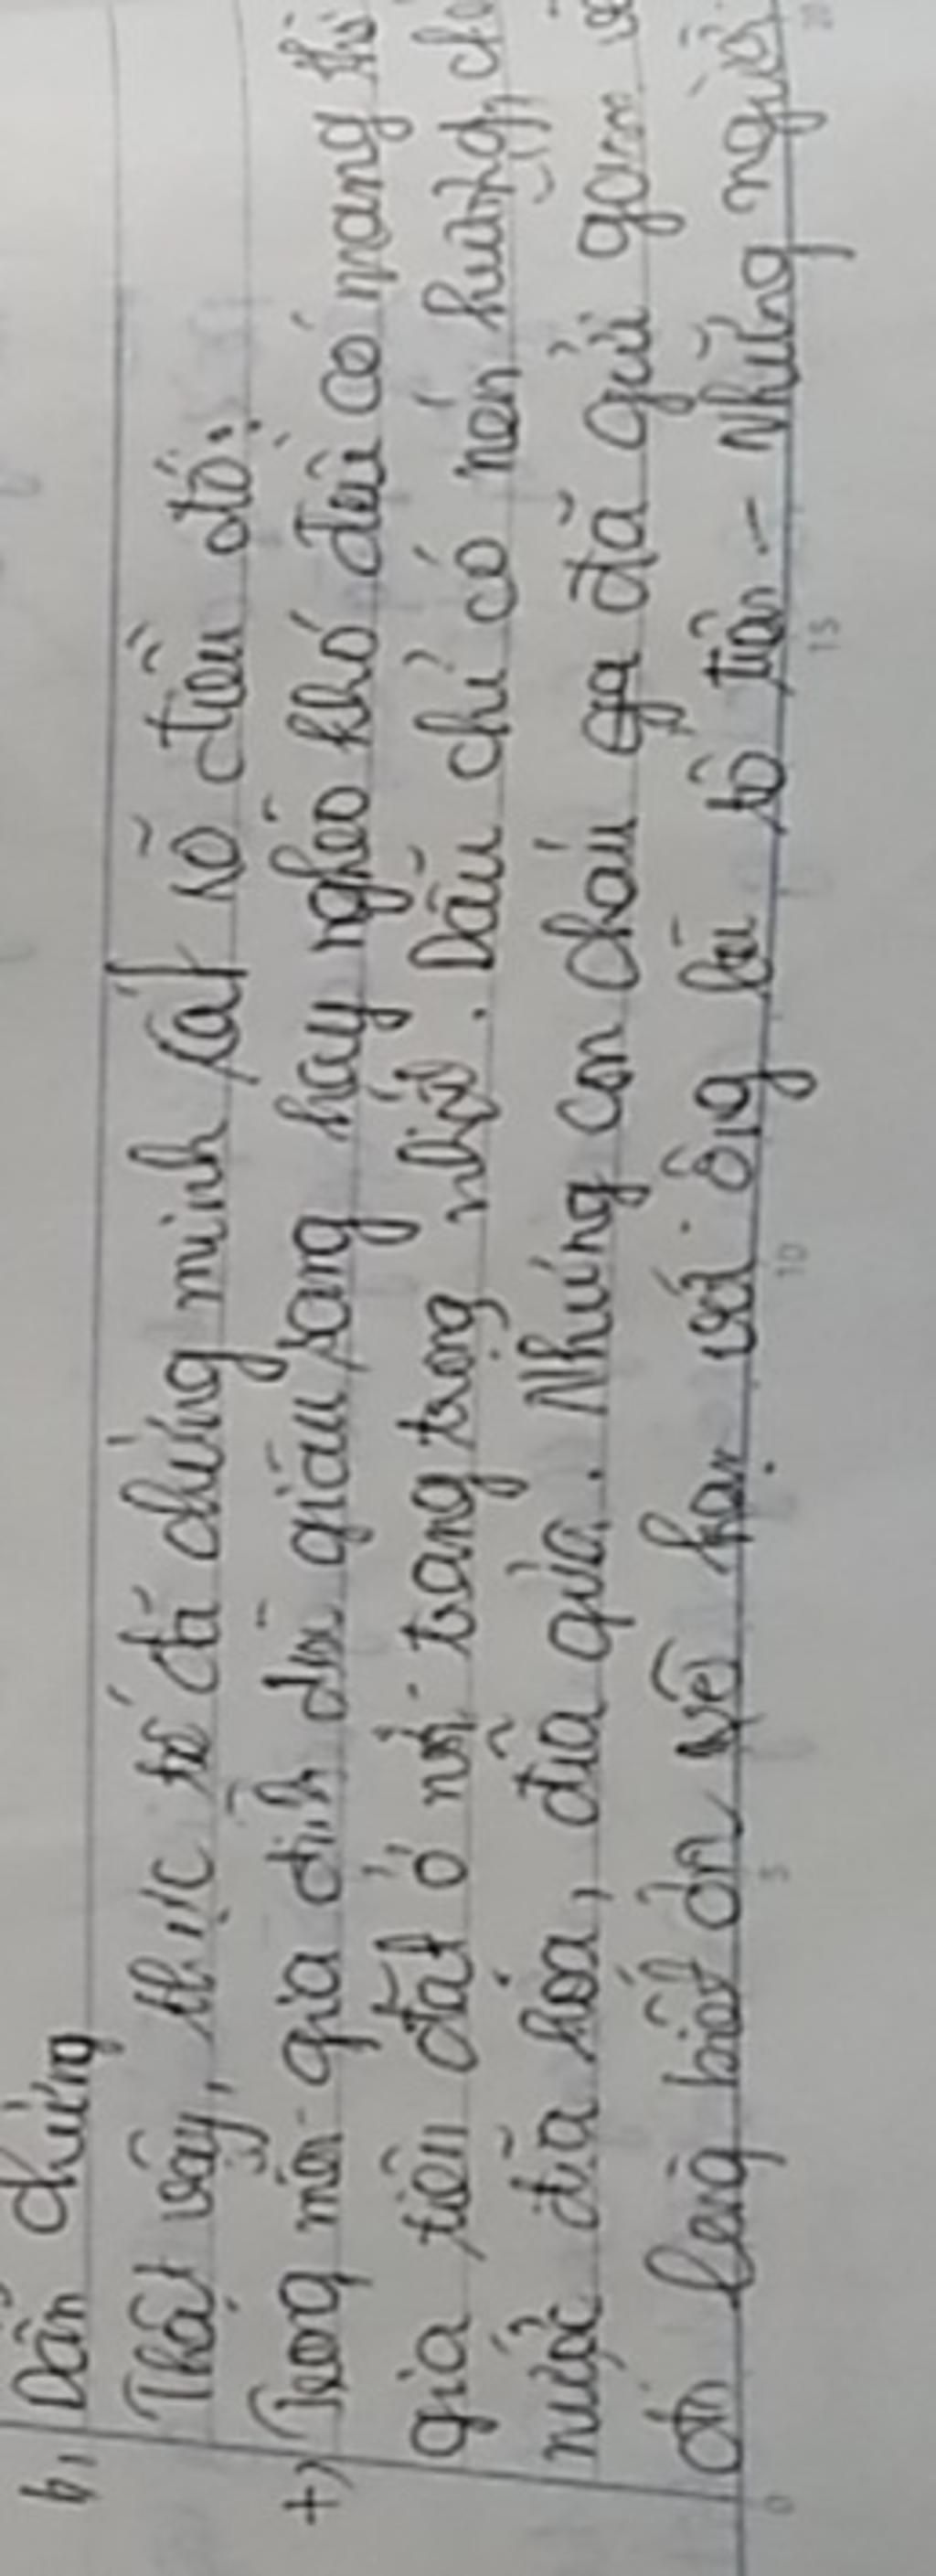 b, Dẫn chứng
Thật vậy, thực tế đã chứng minh rất rõ điều đó:
+) Trong mỗi gia đình dù giàu sang hay nghèo khó đều có mang
gia tiên đặt ở nơi trang trọng nhất. Dẫu chỉ có nén hương,
nước đĩa hoa, đĩa quả. Nhưng con cháu đã gửi gam
đó lòng biết ơn vô hạn với ông bà tổ tiên - Những người